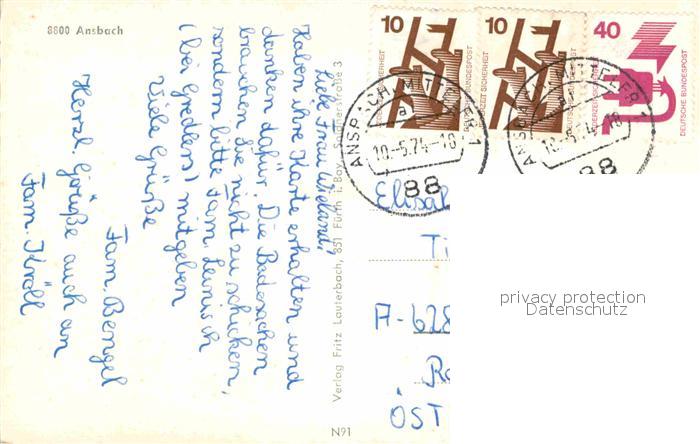 8800 Ansbach
Liebe Frau Wieland!
Haben ihre Karte erhalten und
danken dafür. Die Badesachen
brauchen Sie nicht zu schicken,
sondern bitte Fam.
(bei Gredlers) mitgeben
Viele Grüße
Fam. Bengel
Herzl. Grüße auch an
Fam. Kröll
Verlag Fritz Lauterbach, 851 Fürth i. Bay., straße 3
N91
10
10
40
DEUTSCHE BUNDESPOST
JEDERZEIT SICHERHEIT
ANSBACH, MITTELFR 1
a
10.-5.74-18
88
ANSBACH, MITTELFR 1
10.-5.74-18
88
Elisab
Ti
A-628
Ro
ÖST
privacy protection
Datenschutz